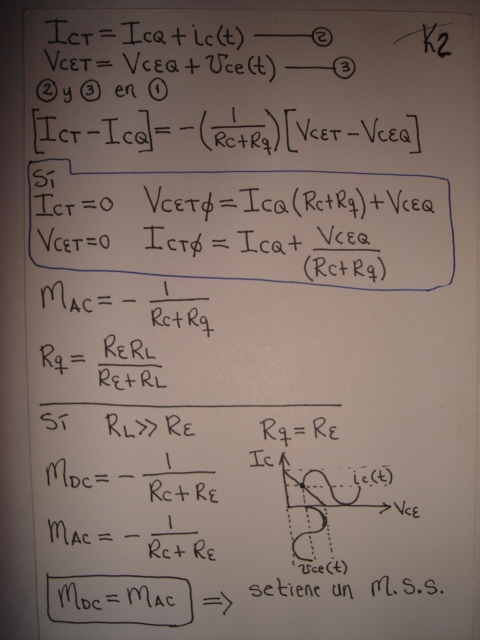 K2
ICT = ICQ + ic(t) —— ②
VCET = VCEQ + vce(t) —— ③
② y ③ en ①
[ICT - ICQ] = -(1/(RC+Rq)) [VCET - VCEQ]
Sī
ICT = 0 VCETϕ = ICQ (RC+Rq) + VCEQ
VCET = 0 ICTϕ = ICQ + VCEQ/(RC+Rq)
MAC = - 1/(RC+Rq)
Rq = RERL/(RE+RL)
Sī RL >> RE Rq = RE
IC
ic(t)
VCE
vce(t)
MDC = - 1/(RC+RE)
MAC = - 1/(RC+RE)
MDC = MAC ⇒ setiene un M.S.S.